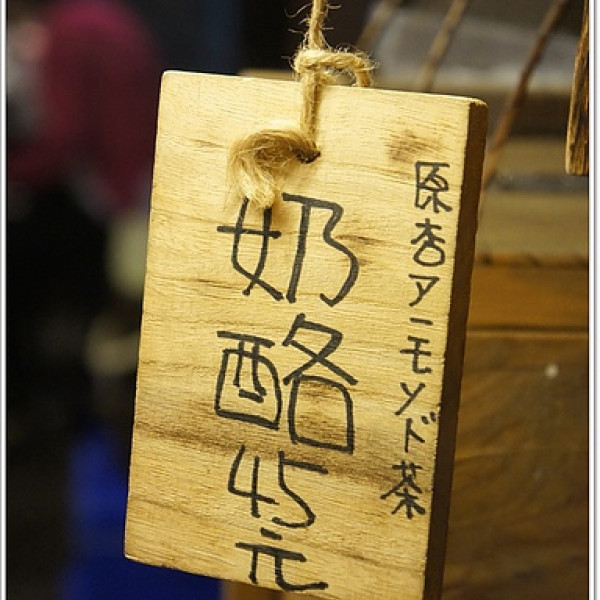 原杏アニモソド茶
奶酪45元